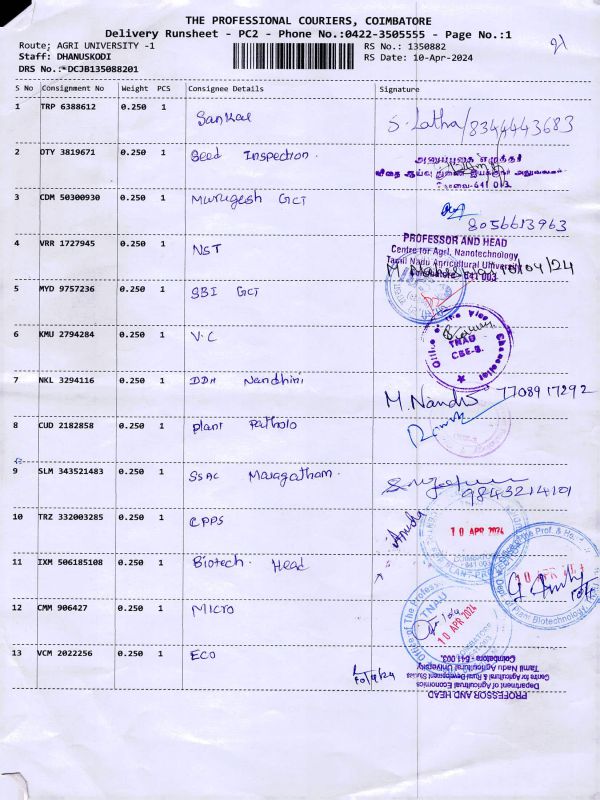 THE PROFESSIONAL COURIERS, COIMBATORE
Delivery Runsheet - PC2 - Phone No.:0422-3505555 - Page No.:1
Route; AGRI UNIVERSITY -1
RS No.: 1350882
Staff: DHANUSKODI
RS Date: 10-Apr-2024
DRS No.:*DCJB135088201
S No Consignment No Weight PCS Consignee Details Signature
1 TRP 6388612 0.250 1 Sankal S. Latha/8344443683
2 DTY 3819671 0.250 1 Seed Inspection.
அலுவலகம்
கோவை-641 013.
3 CDM 50300930 0.250 1 Murugesh GCT
8056613963
4 VRR 1727945 0.250 1 NST
PROFESSOR AND HEAD
Centre for Agrl. Nanotechnology
Tamil Nadu Agricultural University
Coimbatore - 641 003
10/04/24
5 MYD 9757236 0.250 1 SBI GCT
6 KMU 2794284 0.250 1 V.C
Office of The Vice Chancellor
TNAU
CBE-3.
7 NKL 3294116 0.250 1 DDH Nandhini M. Nandhi 7708917292
8 CUD 2182858 0.250 1 plant Patholo
9 SLM 343521483 0.250 1 SSAC Maragatham.
9843214101
10 TRZ 332003285 0.250 1 CPPS
10 APR 2024
11 IXM 506185108 0.250 1 Biotech. Head
Plant Biotechnology
12 CMM 906427 0.250 1 MICRO
Office of The Professor
TNAU
10 APR 2024
13 VCM 2022256 0.250 1 ECO
PROFESSOR AND HEAD
Department of Agricultural Economics
Centre for Agricultural & Rural Development Studies
Tamil Nadu Agricultural University
Coimbatore - 641 003.